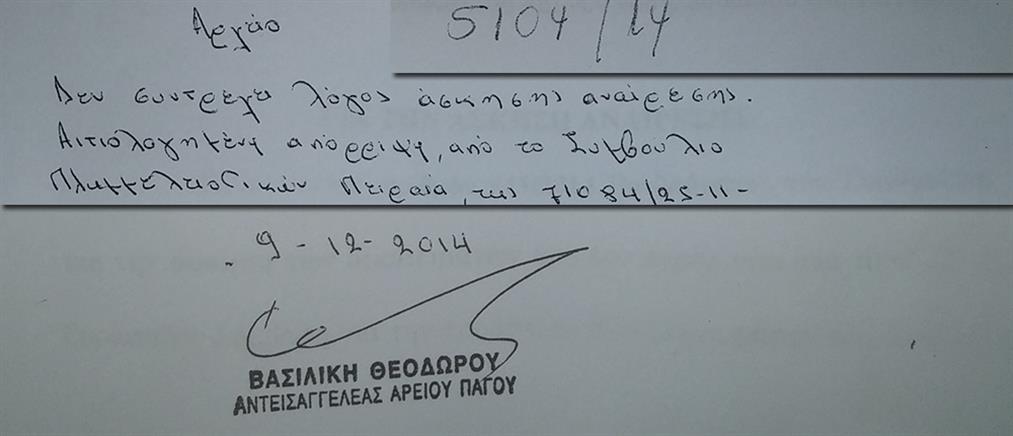 Αρχείο
5104/14
Δεν συντρέχει λόγος άσκησης αναίρεσης.
Αιτιολογημένη απόρριψη, από το Συμβούλιο
Πλημμελειοδικών Πειραιά, της 71084/25-11-
9-12-2014
ΒΑΣΙΛΙΚΗ ΘΕΟΔΩΡΟΥ
ΑΝΤΕΙΣΑΓΓΕΛΕΑΣ ΑΡΕΙΟΥ ΠΑΓΟΥ